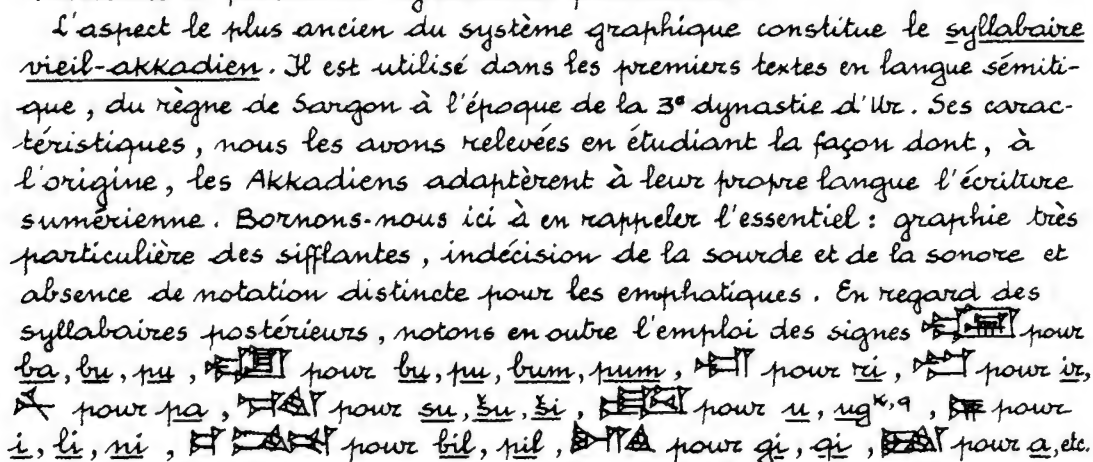 L'aspect le plus ancien du système graphique constitue le syllabaire
vieil-akkadien. Il est utilisé dans les premiers textes en langue sémiti-
que, du règne de Sargon à l'époque de la 3e dynastie d'Ur. Ses carac-
téristiques, nous les avons relevées en étudiant la façon dont, à
l'origine, les Akkadiens adaptèrent à leur propre langue l'écriture
sumérienne. Bornons-nous ici à en rappeler l'essentiel : graphie très
particulière des sifflantes, indécision de la sourde et de la sonore et
absence de notation distincte pour les emphatiques. En regard des
syllabaires postérieurs, notons en outre l'emploi des signes pour
ba, bu, pu, pour bu, pu, bum, pum, pour ri, pour ir,
pour pa, pour su, šu, ši, pour u, ug k,q, pour
i, li, ni, pour bil, pil, pour gi, qi, pour a, etc.